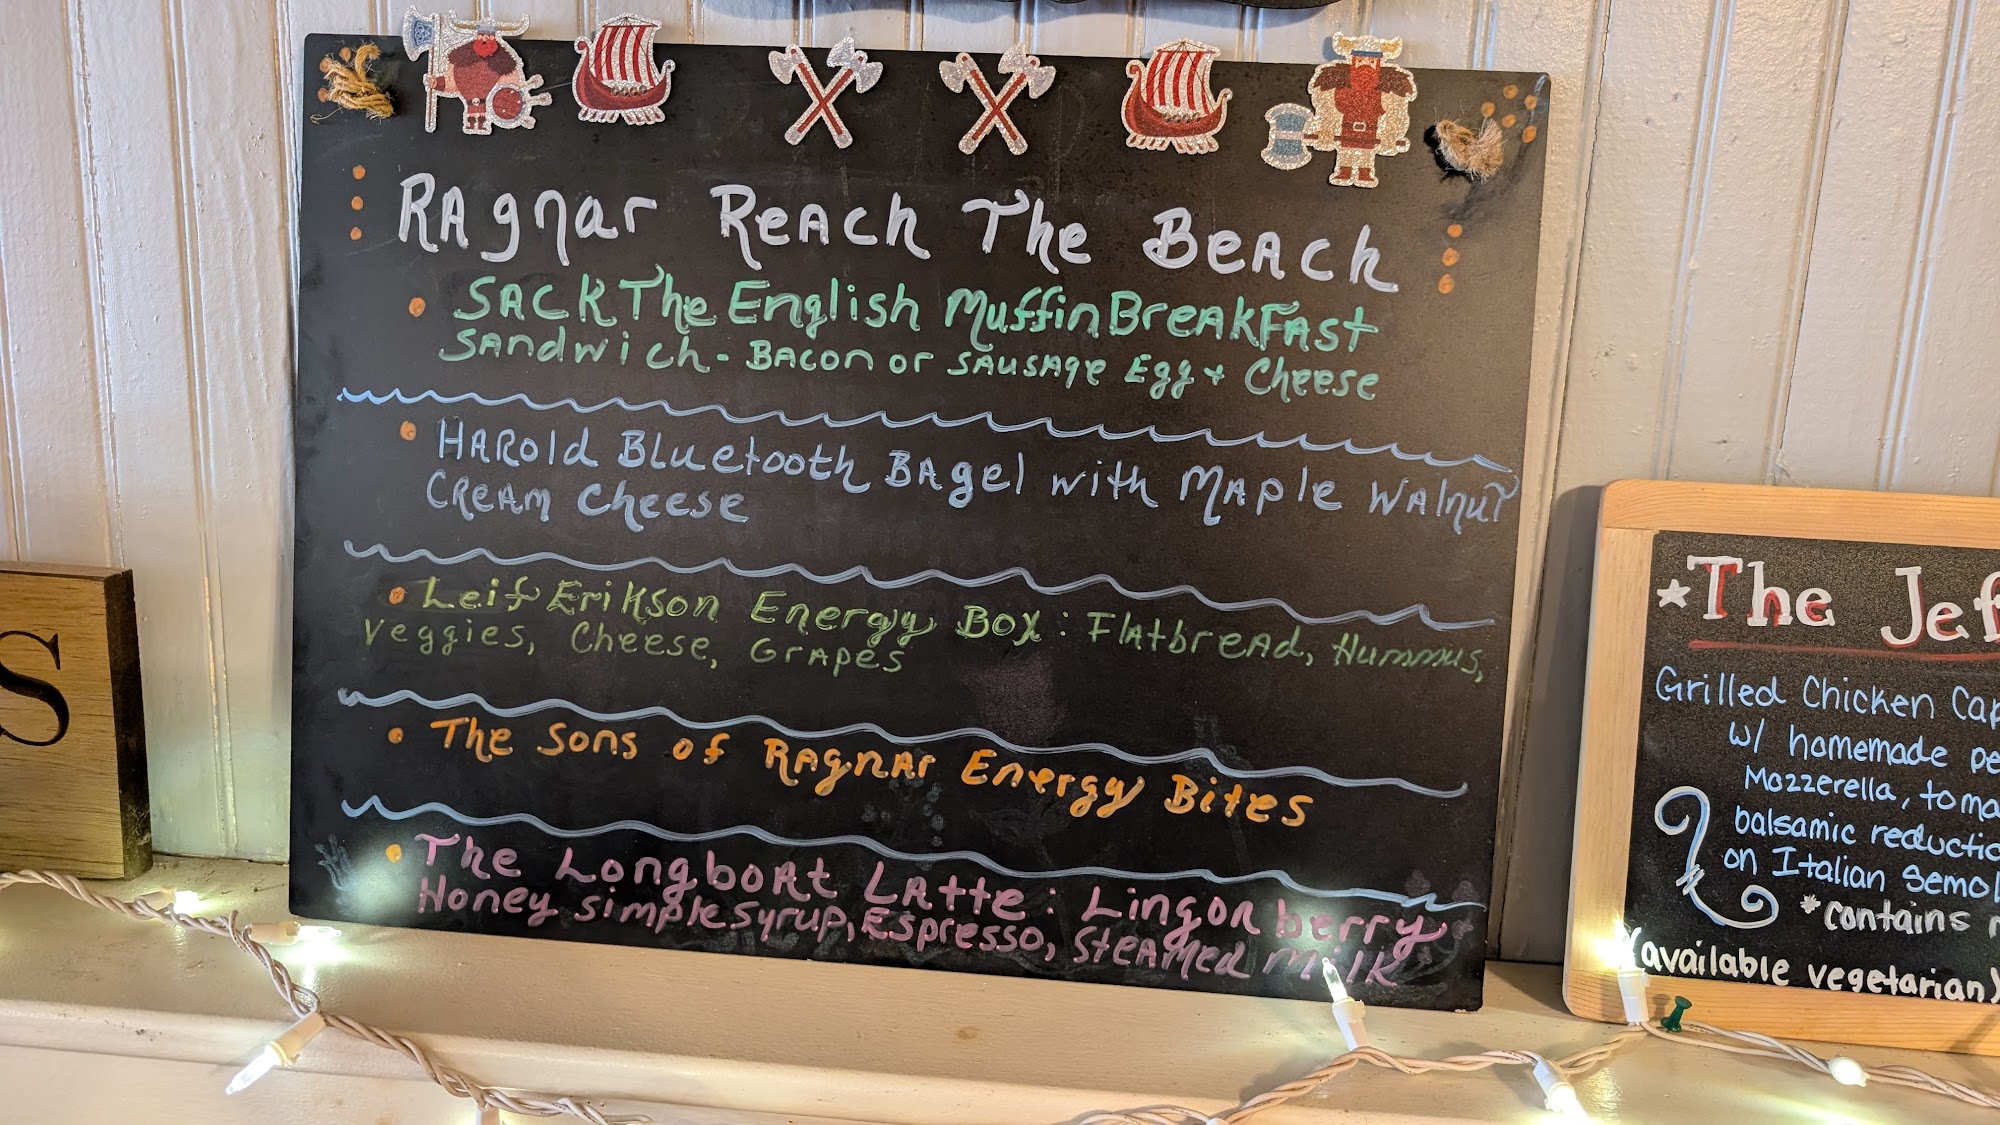 RAgnar REACh The BEACh
• SACK The English MuffinBreakFast
Sandwich - BACon or SAUSAge Egg + Cheese
• HARold Bluetooth BAgel with MAple WAlnut
CREAM Cheese
• Leif Erikson Energy Box: FlAtbreAd, Hummus,
Veggies, Cheese, GrApes
• The Sons of RAgnAr Energy Bites
• The LongboAt LAtte: Lingonberry
Honey simple syrup, Espresso, SteAmed milk
S
★The Jef
Grilled Chicken Cap
w/ homemade pe
Mozzerella, toma
balsamic reductio
on Italian Semol
*contains
(available vegetarian)